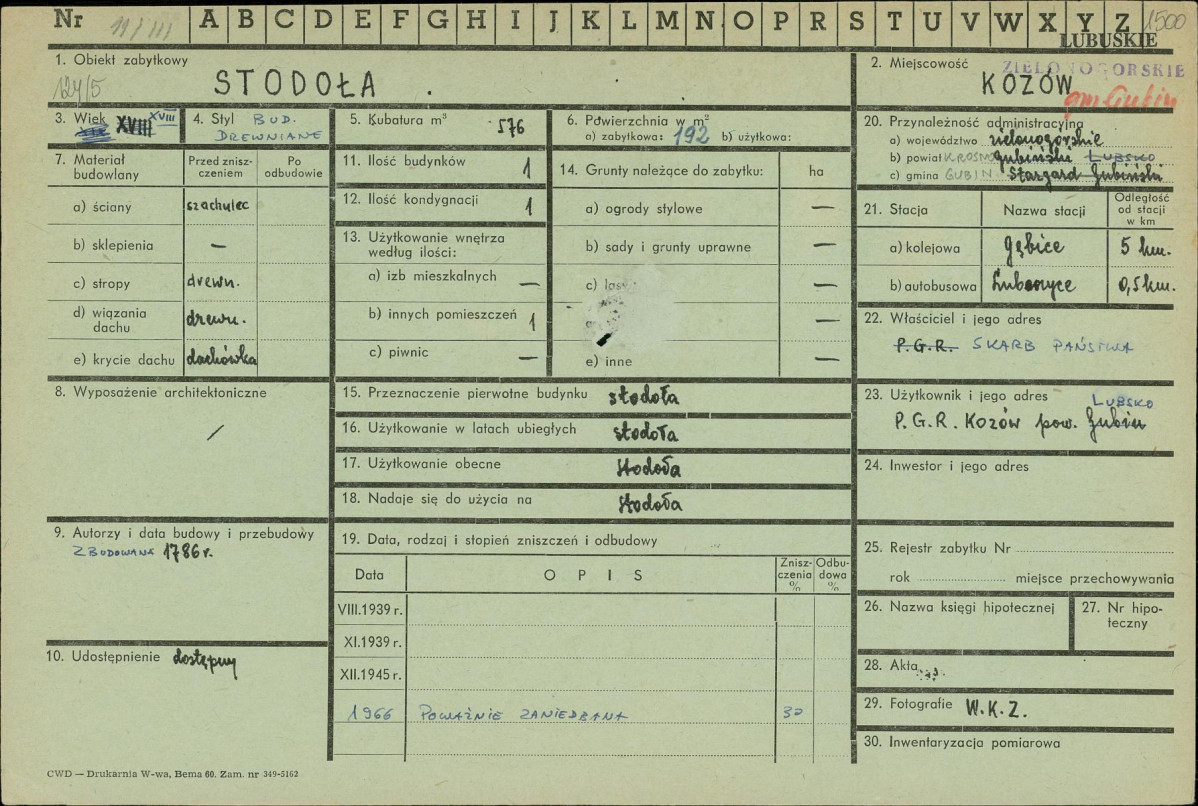 Nr 11/III A B C D E F G H I J K L M N O P R S T U V W X Y Z 1500
LUBUSKIE
1. Obiekt zabytkowy
124/5 STODOŁA
2. Miejscowość ZIELONOGORSKIE
KOZÓW
gm Gubin
3. Wiek XIX XVIII XVIII
4. Styl BUD. DREWNIANE
5. Kubatura m³ 576
6. Powierzchnia w m²
a) zabytkowa: 192 b) użytkowa:
7. Materiał budowlany
Przed zniszczeniem
Po odbudowie
a) ściany szachulec
b) sklepienia —
c) stropy drewn.
d) wiązania dachu drewn.
e) krycie dachu dachówka
8. Wyposażenie architektoniczne
/
9. Autorzy i data budowy i przebudowy
ZBUDOWANA 1786 r.
10. Udostępnienie dostępny
11. Ilość budynków 1
12. Ilość kondygnacji 1
13. Użytkowanie wnętrza według ilości:
a) izb mieszkalnych —
b) innych pomieszczeń 1
c) piwnic —
14. Grunty należące do zabytku: ha
a) ogrody stylowe —
b) sady i grunty uprawne —
c) lasy —
—
e) inne —
15. Przeznaczenie pierwotne budynku stodoła
16. Użytkowanie w latach ubiegłych stodoła
17. Użytkowanie obecne stodoła
18. Nadaje się do użycia na stodoła
19. Data, rodzaj i stopień zniszczeń i odbudowy
Data OPIS Zniszczenia % Odbudowa %
VIII.1939 r.
XI.1939 r.
XII.1945 r.
1966 POWAŻNIE ZANIEDBANA 30
20. Przynależność administracyjna
a) województwo zielonogórskie
b) powiat KROSNO gubiński LUBSKO
c) gmina GUBIN Stargard Gubiński
21. Stacja Nazwa stacji Odległość od stacji w km
a) kolejowa Gębice 5 km.
b) autobusowa Luboszyce 0,5 km.
22. Właściciel i jego adres
P.G.R. SKARB PAŃSTWA
23. Użytkownik i jego adres LUBSKO
P.G.R. Kozów pow. Gubin
24. Inwestor i jego adres
25. Rejestr zabytku Nr
rok miejsce przechowywania
26. Nazwa księgi hipotecznej
27. Nr hipoteczny
28. Akta
29. Fotografie W.K.Z.
30. Inwentaryzacja pomiarowa
CWD — Drukarnia W-wa, Bema 60. Zam. nr 349-5162